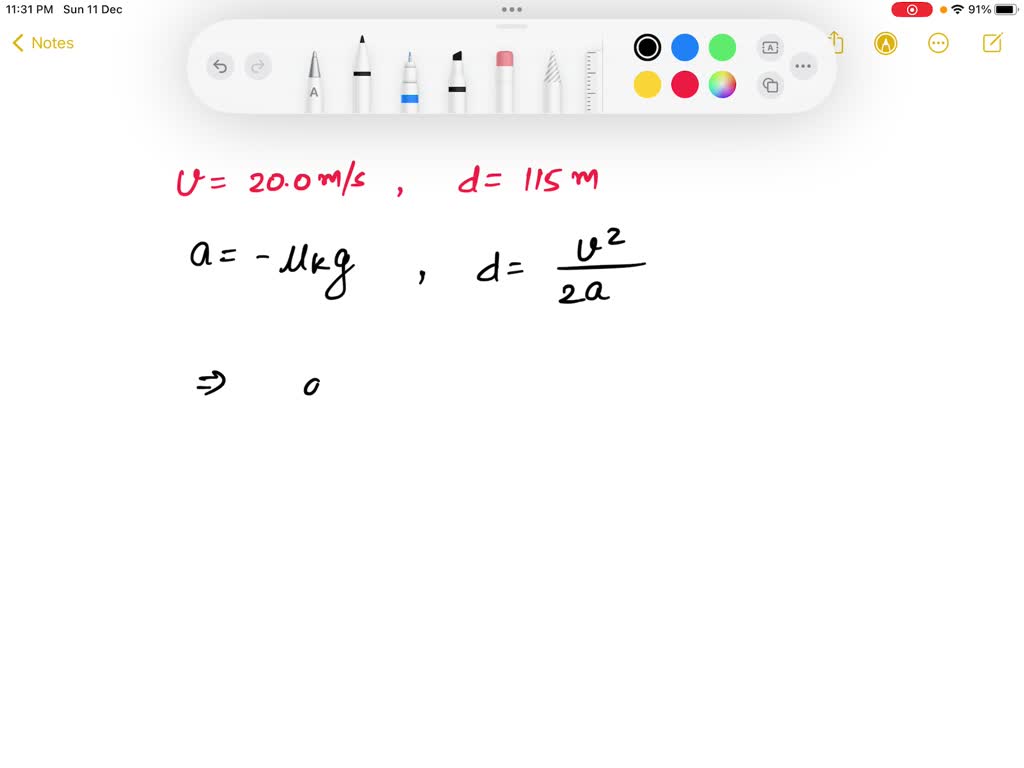 11:31 PM Sun 11 Dec 91%
Notes
A A
v = 20.0 m/s , d = 115 m
a = - μkg , d = v²/2a
⇒ a